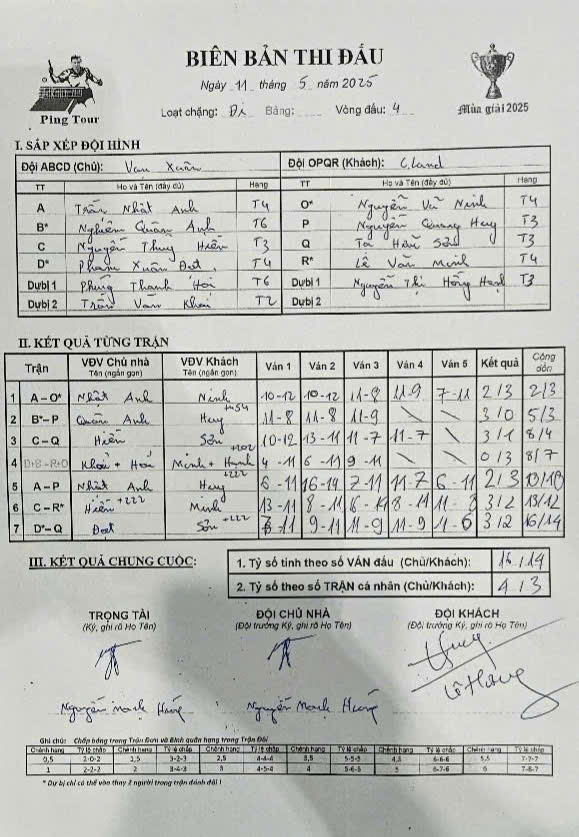 BIÊN BẢN THI ĐẤU
Ngày 11 tháng 5 năm 2025
Ping Tour
Loạt chặng: Đi Bảng: Vòng đấu: 4
Mùa giải 2025
I. SẮP XẾP ĐỘI HÌNH
Đội ABCD (Chủ): Vạn Xuân Đội OPQR (Khách): C.Land
TT Họ và Tên (đầy đủ) Hạng TT Họ và Tên (đầy đủ) Hạng
A Trần Nhật Anh T4 O* Nguyễn Vũ Ninh T4
B* Nghiêm Quân Anh T6 P Nguyễn Quang Huy T3
C Nguyễn Thuý Hiền T3 Q Tạ Hữu Sơn T3
D* Phạm Xuân Đạt T4 R* Lê Văn Minh T4
Dự bị 1 Phùng Thanh Hoà T6 Dự bị 1 Nguyễn Thị Hồng Hạnh T3
Dự bị 2 Trần Văn Khải T2 Dự bị 2
II. KẾT QUẢ TỪNG TRẬN
Trận VĐV Chủ nhà Tên (ngắn gọn) VĐV Khách Tên (ngắn gọn) Ván 1 Ván 2 Ván 3 Ván 4 Ván 5 Kết quả Cộng dồn
1 A – O* Nhật Anh Ninh 10-12 10-12 11-8 11-9 7-11 2/3 2/3
2 B*– P Quân Anh Huy 11-8 11-8 11-9 \ \ 3/0 5/3
3 C – Q Hiền Sơn 10-12 13-11 11-7 11-7 \ 3/1 8/4
4 D+B - R+O Khải + Hoà Minh + Hạnh 4-11 6-11 9-11 \ \ 0/3 8/7
5 A – P Nhật Anh Huy +222 6-11 16-14 7-11 11-7 6-11 2/3 10/10
6 C – R* Hiền +222 Minh 13-11 8-11 8-11 3/2 13/12
7 D*– Q Đạt Sơn +222 9-11 11-9 11-9 3/2 16/14
III. KẾT QUẢ CHUNG CUỘC:
1. Tỷ số tính theo số VÁN đấu (Chủ/Khách): 16/14
2. Tỷ số theo số TRẬN cá nhân (Chủ/Khách): 4/3
TRỌNG TÀI ĐỘI CHỦ NHÀ ĐỘI KHÁCH
(Ký, ghi rõ Họ Tên) (Đội trưởng Ký, ghi rõ Họ Tên) (Đội trưởng Ký, ghi rõ Họ Tên)
Nguyễn Mạnh Hùng Nguyễn Mạnh Hùng
Ghi chú: Chấp bóng trong Trận Đơn và Bình quân hạng trong Trận Đôi
Chênh hạng Tỷ lệ chấp Chênh hạng Tỷ lệ chấp Chênh hạng Tỷ lệ chấp Chênh hạng Tỷ lệ chấp Chênh hạng Tỷ lệ chấp Chênh hạng Tỷ lệ chấp
0,5 2-0-2 1,5 3-2-3 2,5 4-4-4 3,5 5-5-5 4,5 6-6-6 5,5 7-7-7
1 2-2-2 2 3-4-3 3 4-5-4 4 5-6-5 5 6-7-6 6 7-8-7
* Dự bị chỉ có thể vào thay 2 người trong trận đánh đôi !